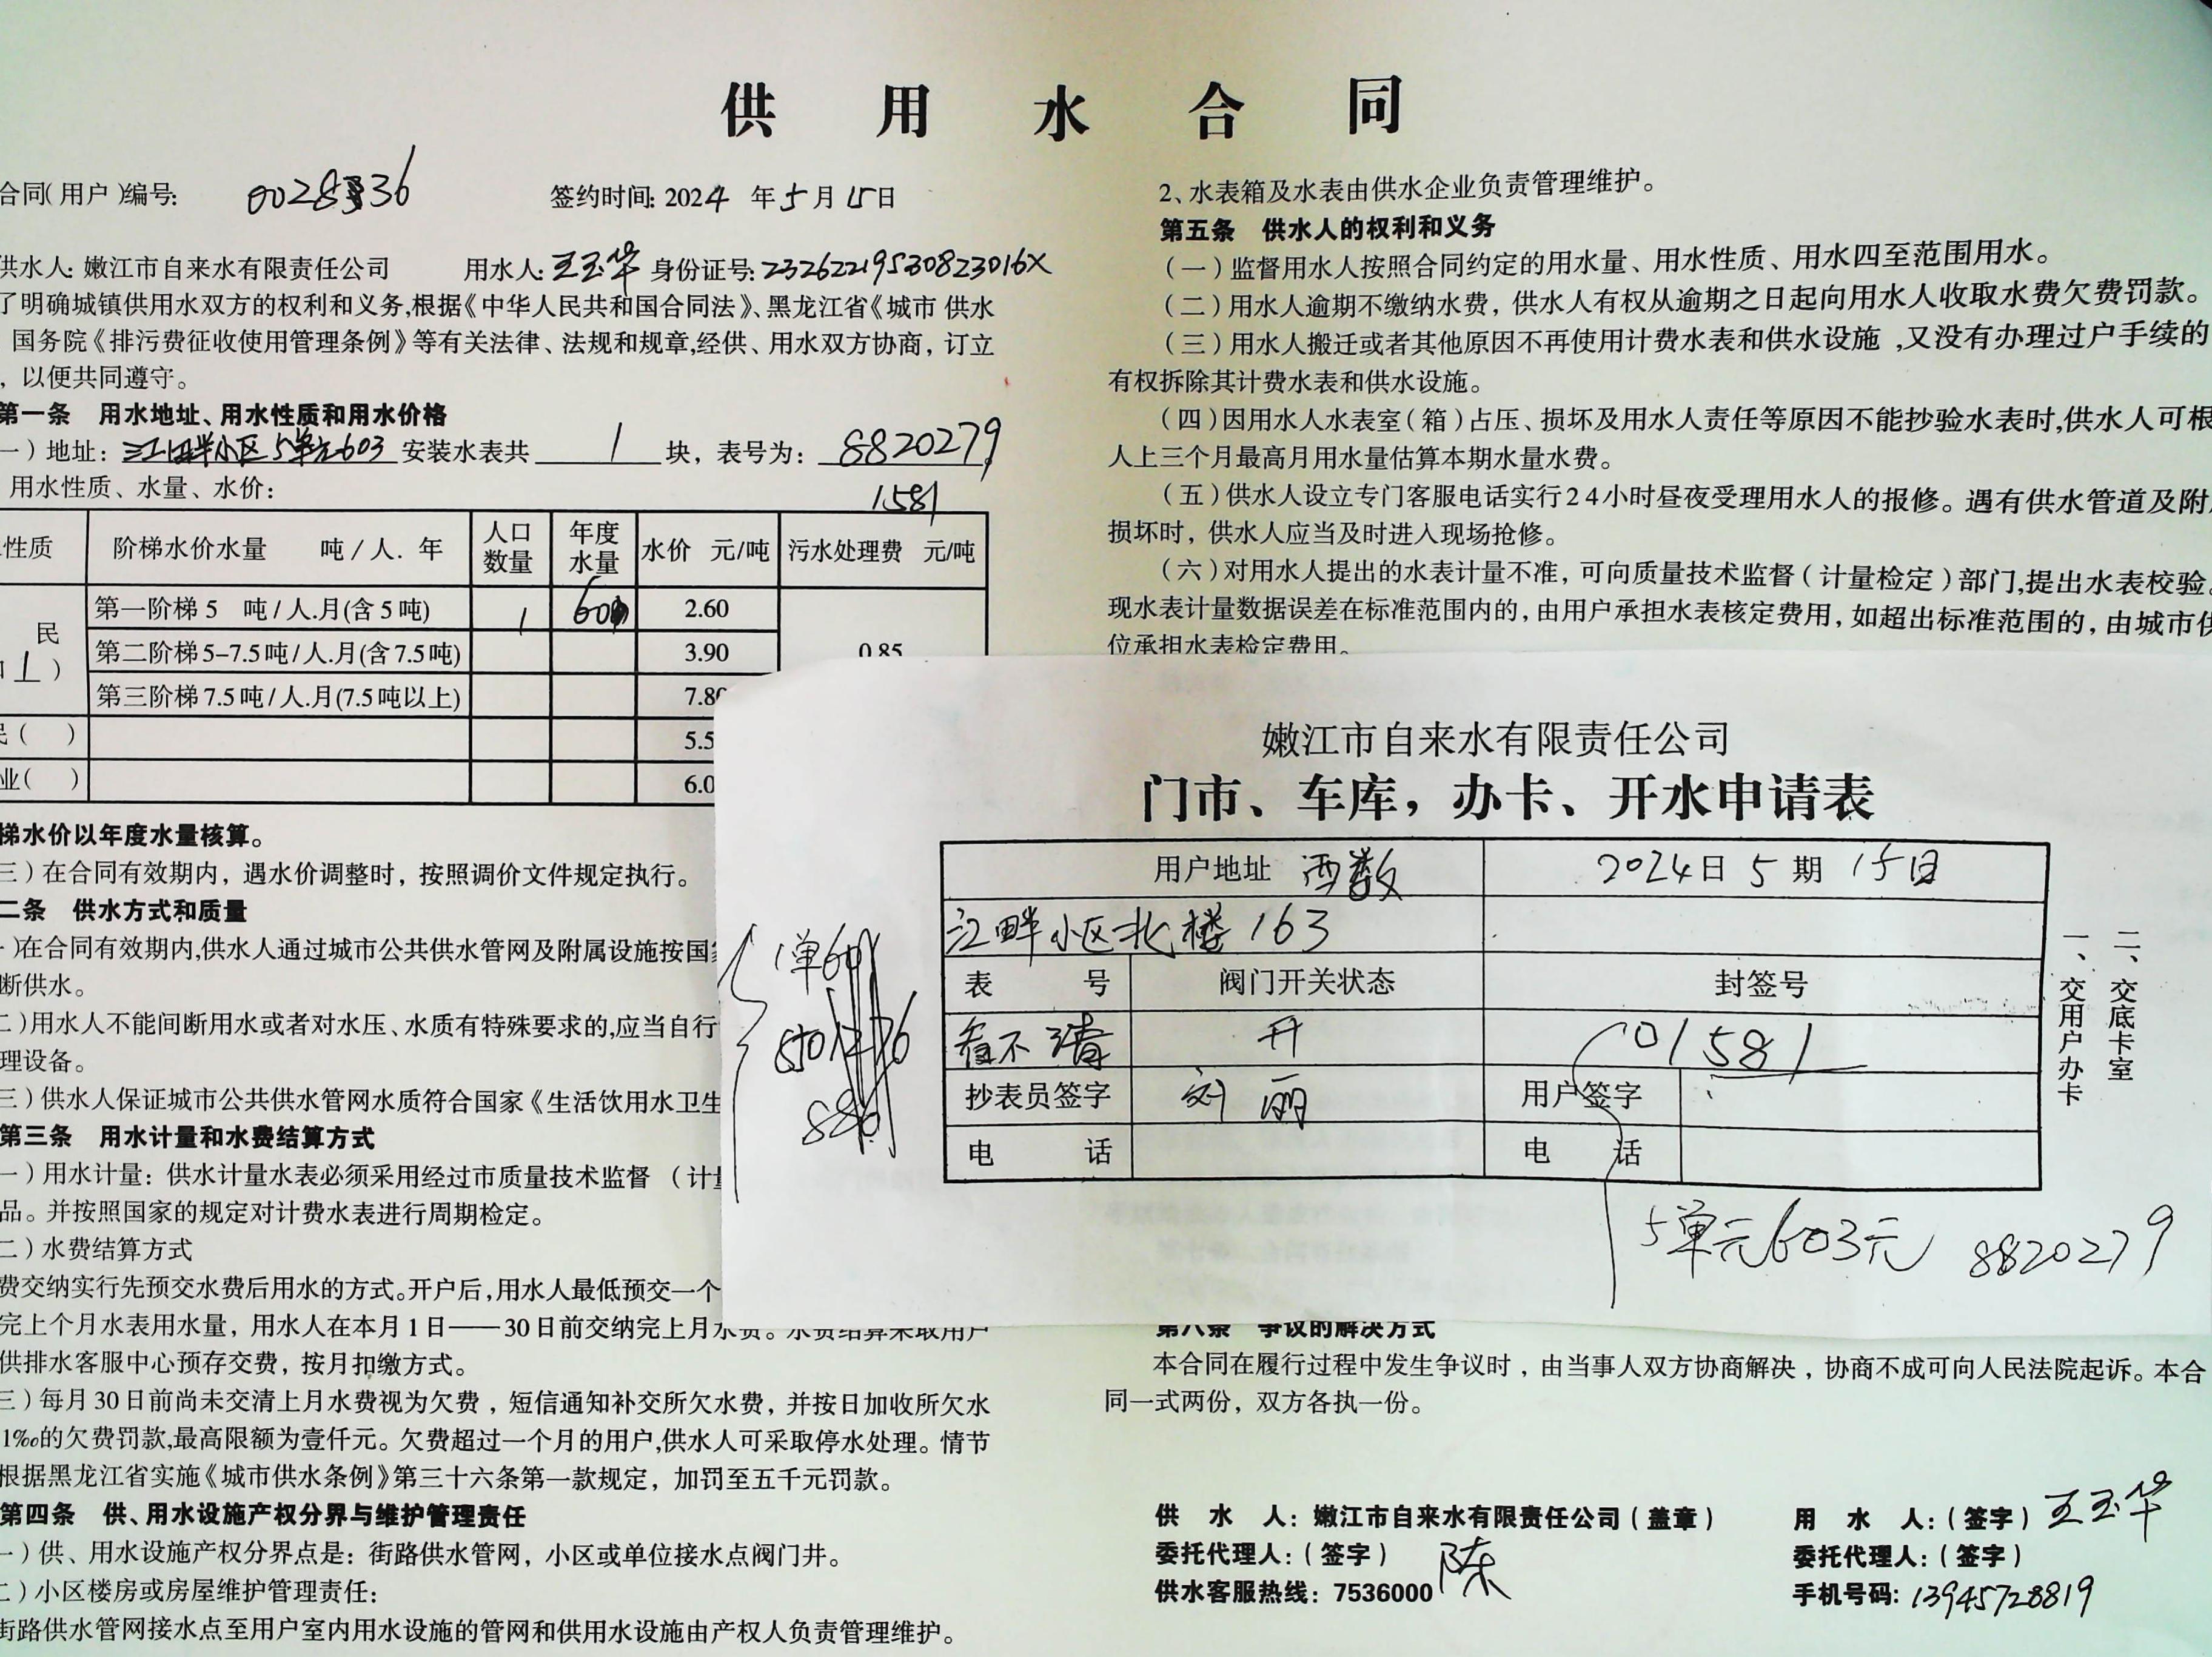 供用水合同
合同(用户)编号: 0028336
签约时间: 2024年5月15日
供水人: 嫩江市自来水有限责任公司 用水人: 王玉华 身份证号: 23262219530823016X
了明确城镇供用水双方的权利和义务,根据《中华人民共和国合同法》、黑龙江省《城市 供水
国务院《排污费征收使用管理条例》等有关法律、法规和规章,经供、用水双方协商，订立
，以便共同遵守。
第一条 用水地址、用水性质和用水价格
一）地址：江畔小区5单元603 安装水表共 1 块，表号为：8820279
1581
用水性质、水量、水价：
性质 阶梯水价水量 吨/人.年 人口数量 年度水量 水价 元/吨 污水处理费 元/吨
民 第一阶梯5 吨/人.月(含5吨) 1 60 2.60
第二阶梯5-7.5吨/人.月(含7.5吨) 3.90 0.85
第三阶梯7.5吨/人.月(7.5吨以上) 7.80
( ) 5.5
业( ) 6.0
梯水价以年度水量核算。
三）在合同有效期内，遇水价调整时，按照调价文件规定执行。
二条 供水方式和质量
)在合同有效期内,供水人通过城市公共供水管网及附属设施按国
断供水。
二)用水人不能间断用水或者对水压、水质有特殊要求的,应当自行
理设备。
三）供水人保证城市公共供水管网水质符合国家《生活饮用水卫生
第三条 用水计量和水费结算方式
一）用水计量：供水计量水表必须采用经过市质量技术监督（计
品。并按照国家的规定对计费水表进行周期检定。
二）水费结算方式
费交纳实行先预交水费后用水的方式。开户后,用水人最低预交一个
完上个月水表用水量，用水人在本月1日——30日前交纳完上月水费。水费结算采取用户
供排水客服中心预存交费，按月扣缴方式。
三）每月30日前尚未交清上月水费视为欠费，短信通知补交所欠水费，并按日加收所欠水
1‰的欠费罚款,最高限额为壹仟元。欠费超过一个月的用户,供水人可采取停水处理。情节
根据黑龙江省实施《城市供水条例》第三十六条第一款规定，加罚至五千元罚款。
第四条 供、用水设施产权分界与维护管理责任
一）供、用水设施产权分界点是：街路供水管网，小区或单位接水点阀门井。
二）小区楼房或房屋维护管理责任：
街路供水管网接水点至用户室内用水设施的管网和供用水设施由产权人负责管理维护。
2、水表箱及水表由供水企业负责管理维护。
第五条 供水人的权利和义务
（一）监督用水人按照合同约定的用水量、用水性质、用水四至范围用水。
（二）用水人逾期不缴纳水费，供水人有权从逾期之日起向用水人收取水费欠费罚款。
（三）用水人搬迁或者其他原因不再使用计费水表和供水设施,又没有办理过户手续的
有权拆除其计费水表和供水设施。
（四）因用水人水表室（箱）占压、损坏及用水人责任等原因不能抄验水表时,供水人可根
人上三个月最高月用水量估算本期水量水费。
（五）供水人设立专门客服电话实行24小时昼夜受理用水人的报修。遇有供水管道及附
损坏时，供水人应当及时进入现场抢修。
（六）对用水人提出的水表计量不准，可向质量技术监督（计量检定）部门,提出水表校验
现水表计量数据误差在标准范围内的，由用户承担水表核定费用，如超出标准范围的，由城市
位承担水表检定费用。
嫩江市自来水有限责任公司
门市、车库，办卡、开水申请表
用户地址 2024日5期15日
江畔小区北楼163
表号 阀门开关状态 封签号
看不清 开 01581
抄表员签字 刘丽 用户签字
电话 电话
一、交用户办卡
二、交底卡室
5单元603元 8820279
第八条 争议的解决方式
本合同在履行过程中发生争议时，由当事人双方协商解决，协商不成可向人民法院起诉。本合
同一式两份，双方各执一份。
供水人：嫩江市自来水有限责任公司（盖章） 用水人：（签字）王玉华
委托代理人：（签字）陈 委托代理人：（签字）
供水客服热线：7536000 手机号码：13945728819